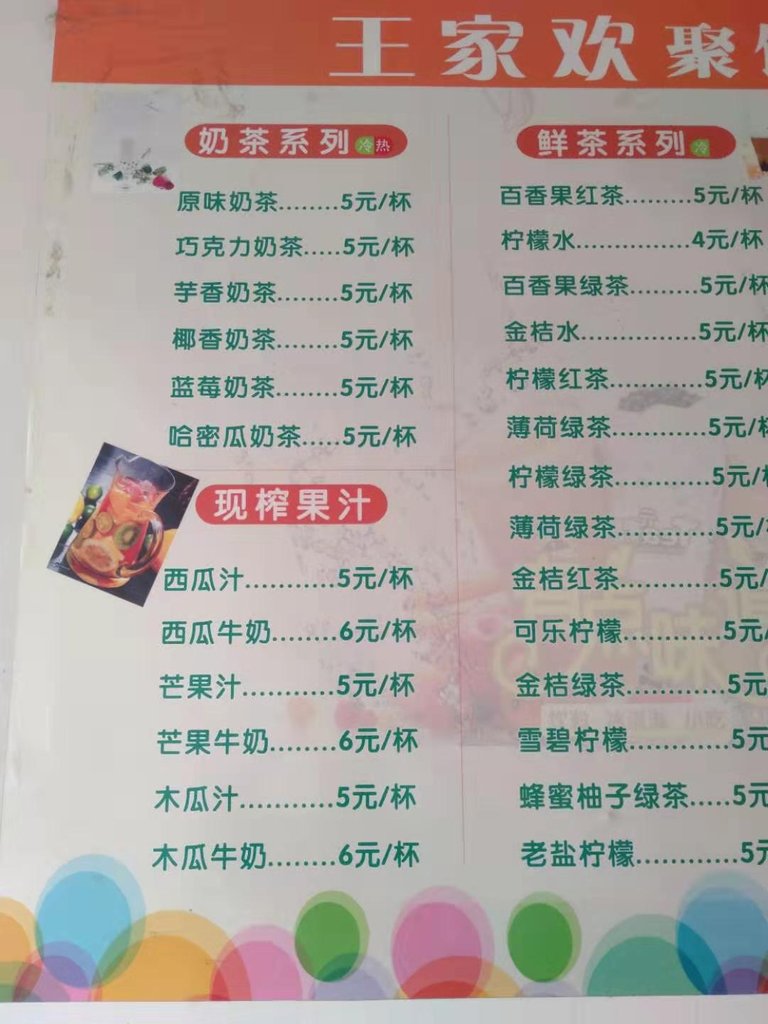 王家欢聚
奶茶系列 冷 热
原味奶茶........5元/杯
巧克力奶茶.....5元/杯
芋香奶茶........5元/杯
椰香奶茶........5元/杯
蓝莓奶茶........5元/杯
哈密瓜奶茶.....5元/杯
现榨果汁
西瓜汁...........5元/杯
西瓜牛奶........6元/杯
芒果汁...........5元/杯
芒果牛奶........6元/杯
木瓜汁...........5元/杯
木瓜牛奶........6元/杯
鲜茶系列 冷
百香果红茶.........5元/杯
柠檬水...............4元/杯
百香果绿茶.........5元/杯
金桔水...............5元/杯
柠檬红茶............5元/杯
薄荷绿茶............5元/
柠檬绿茶............5元/
薄荷绿茶............5元/
金桔红茶............5元/
可乐柠檬............5元/
金桔绿茶............5元
雪碧柠檬............5元
蜂蜜柚子绿茶.....5元
老盐柠檬............5元
味